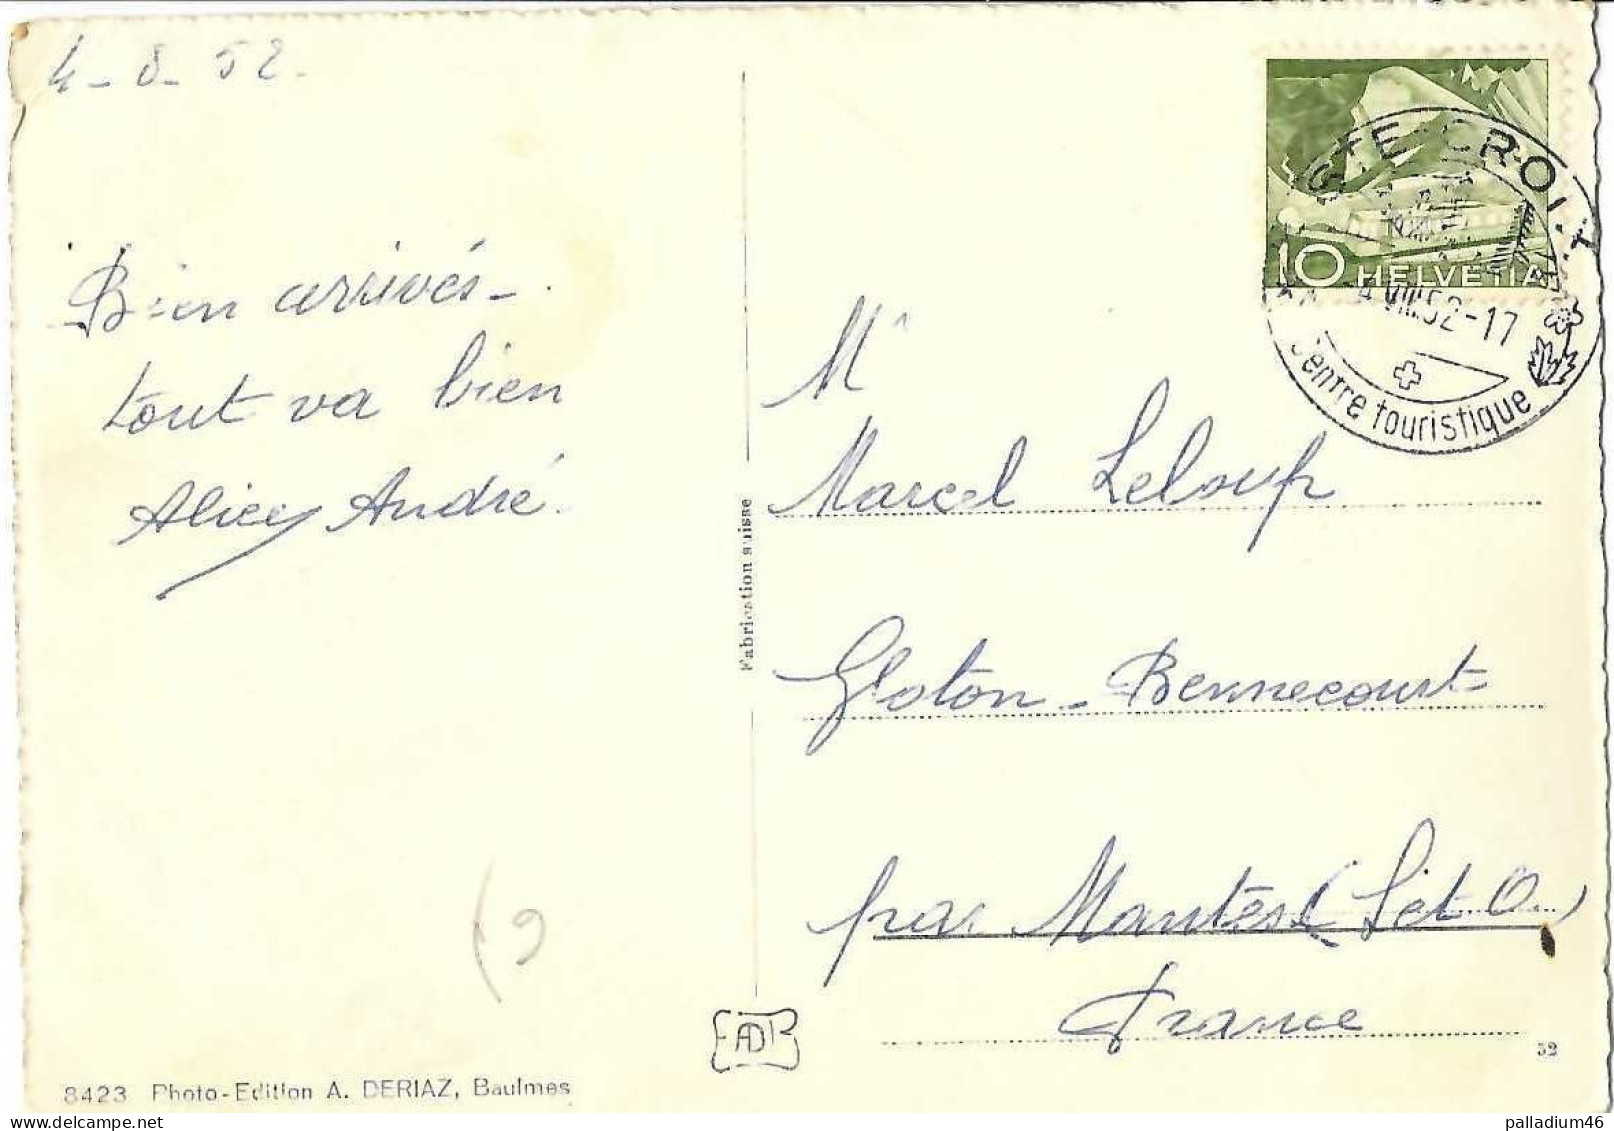 4-8-52-
Bien arrivés-
tout va bien
Alice André
Fabrication suisse
STE-CROIX
10 HELVETIA
4.VIII.52-17
Centre touristique
Mr
Marcel Leloup
Gloton-Bennecourt
par Mantes (S et O.)
France
ADB
52
9
8423 Photo-Edition A. DERIAZ, Baulmes
palladium46